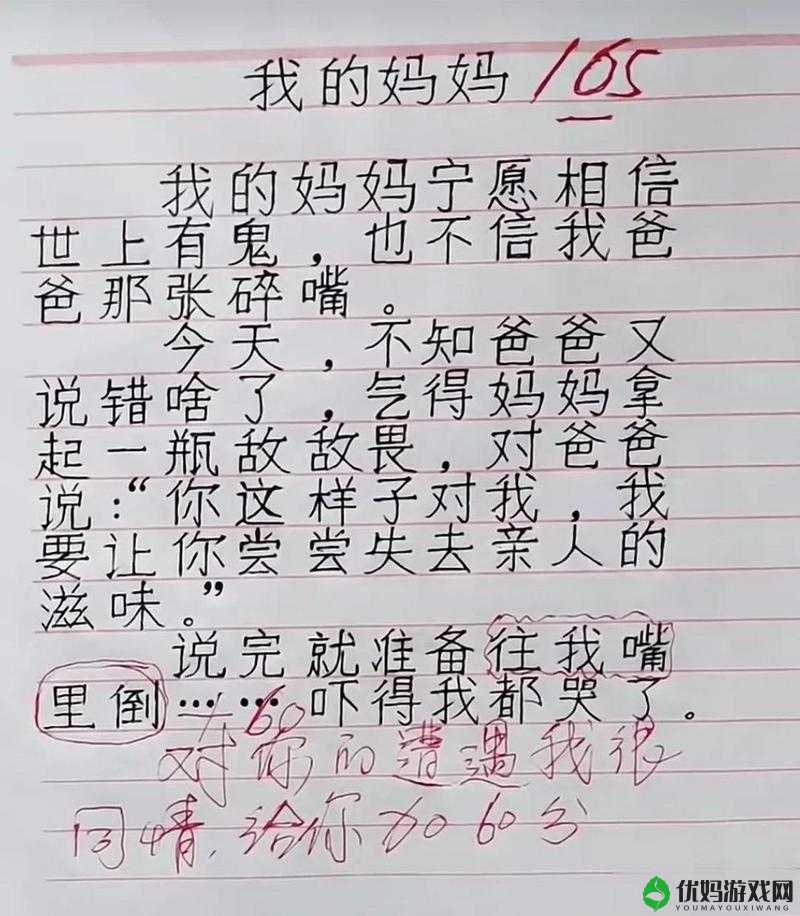 我的妈妈 105
我的妈妈宁愿相信
世上有鬼，也不信我爸
爸那张碎嘴。
今天，不知爸爸又
说错啥了，气得妈妈拿
起一瓶敌敌畏，对爸爸
说：“你这样子对我，我
要让你尝尝失去亲人的
滋味。”
说完就准备往我嘴
里倒……吓得我都哭了。
+60
对你的遭遇我很
同情，给你加60分
优妈游戏网
YOUMAYOUXIWANG